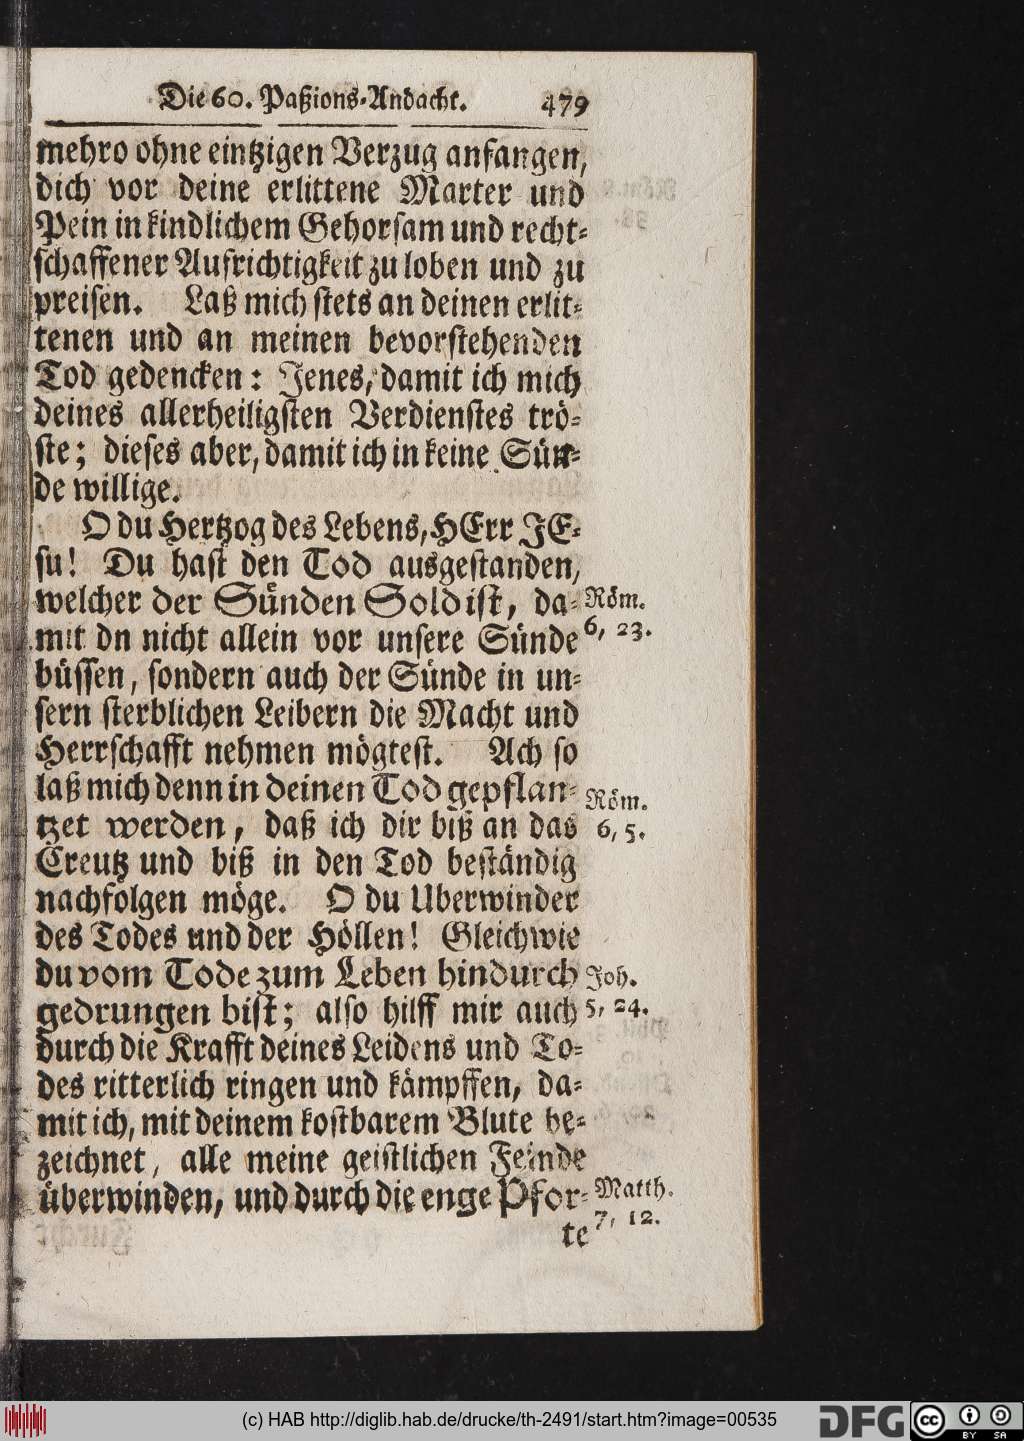 Die 60. Paßions-Andacht. 479
mehro ohne eintzigen Verzug anfangen,
dich vor deine erlittene Marter und
Pein in kindlichem Gehorsam und recht-
schaffener Aufrichtigkeit zu loben und zu
preisen. Laß mich stets an deinen erlit-
tenen und an meinen bevorstehenden
Tod gedencken: Jenes, damit ich mich
deines allerheiligsten Verdienstes trö-
ste; dieses aber, damit ich in keine Sün-
de willige.
O du Hertzog des Lebens, HErr JE-
su! Du hast den Tod ausgestanden,
welcher der Sünden Sold ist, da-
Röm.
mit dn nicht allein vor unsere Sünde
6, 23.
büssen, sondern auch der Sünde in un-
sern sterblichen Leibern die Macht und
Herrschafft nehmen mögtest. Ach so
laß mich denn in deinen Tod gepflan-
Röm.
tzet werden, daß ich dir biß an das
6, 5.
Creutz und biß in den Tod beständig
nachfolgen möge. O du Uberwinder
des Todes und der Höllen! Gleichwie
du vom Tode zum Leben hindurch
Joh.
gedrungen bist; also hilff mir auch
5, 24.
durch die Krafft deines Leidens und To-
des ritterlich ringen und kämpffen, da-
mit ich, mit deinem kostbarem Blute be-
zeichnet, alle meine geistlichen Feinde
überwinden, und durch die enge Pfor-
Matth.
7, 12.
te
(c) HAB http://diglib.hab.de/drucke/th-2491/start.htm?image=00535
DFG
cc
BY SA